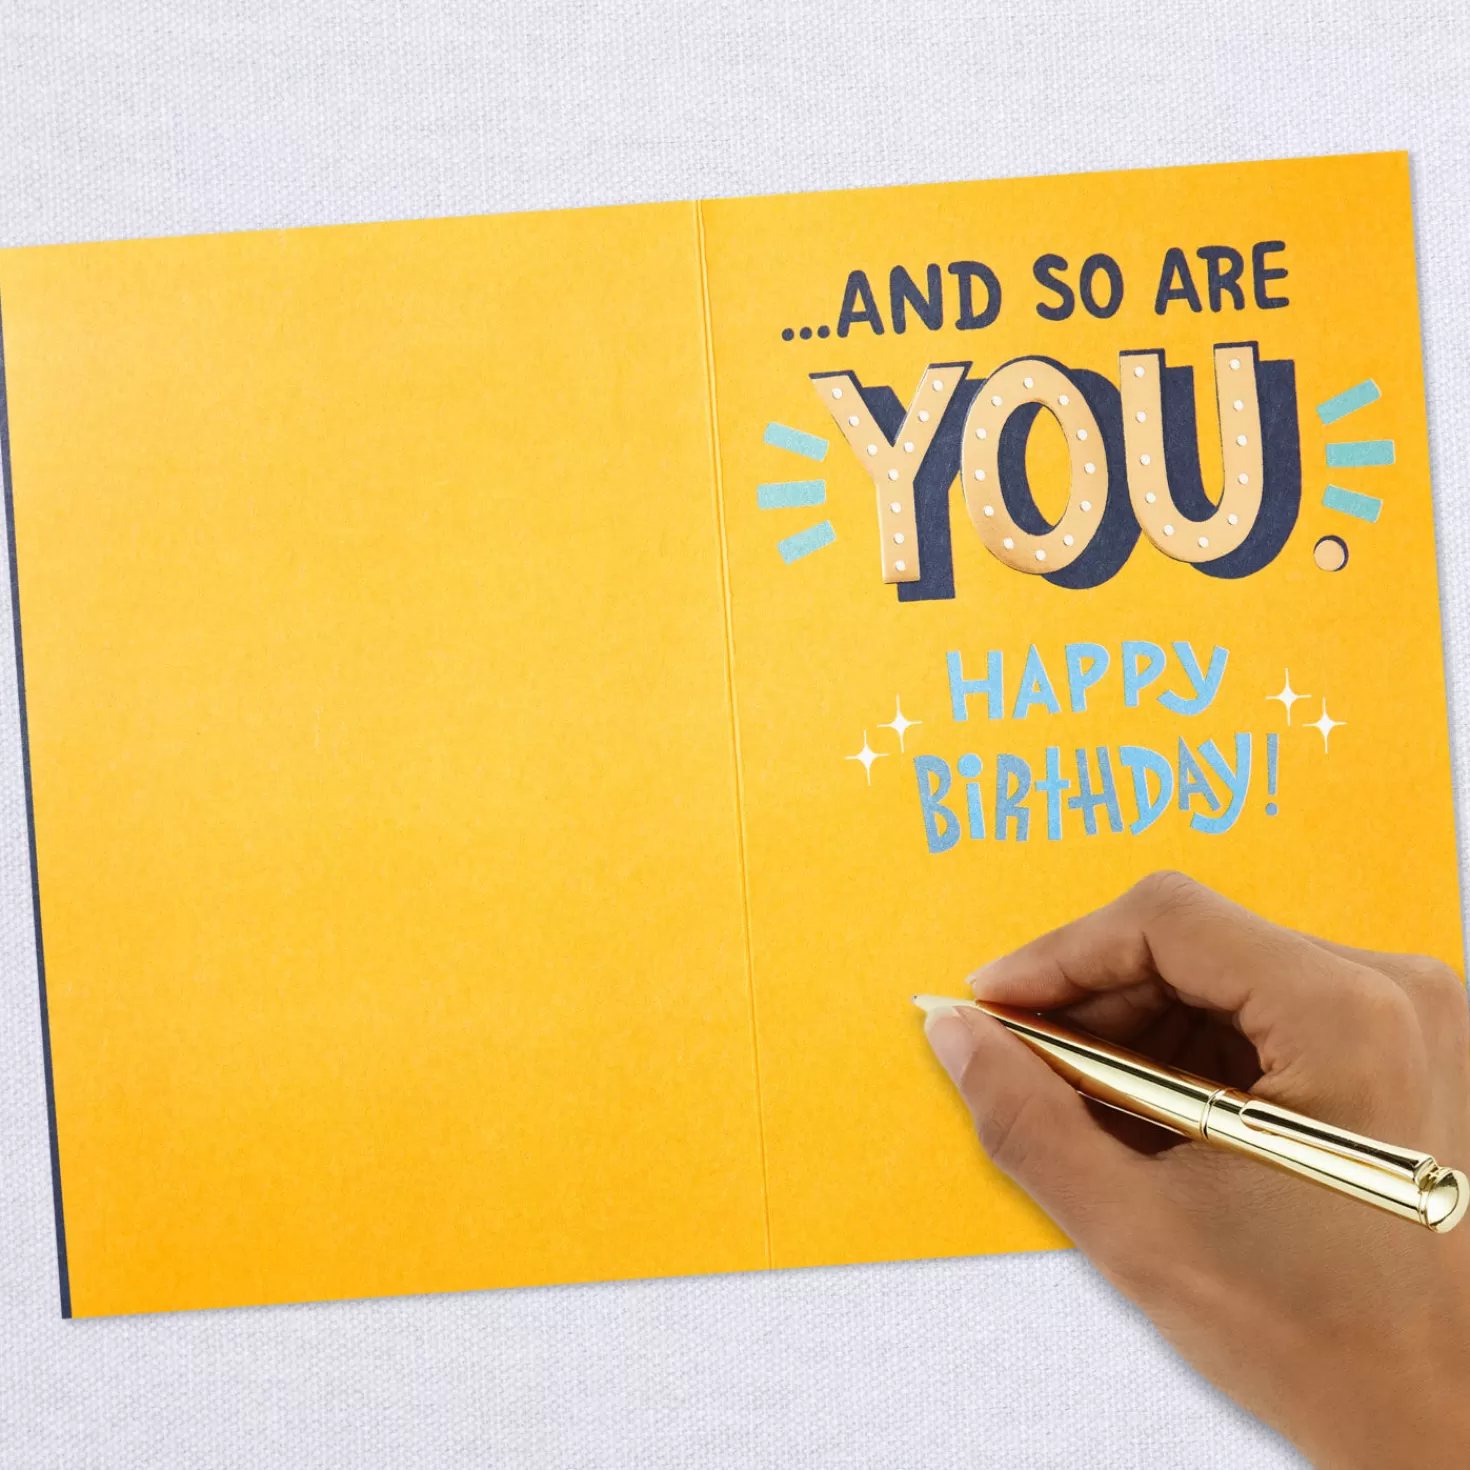 ...AND SO ARE
YOU.
HAPPY
BIRTHDAY!